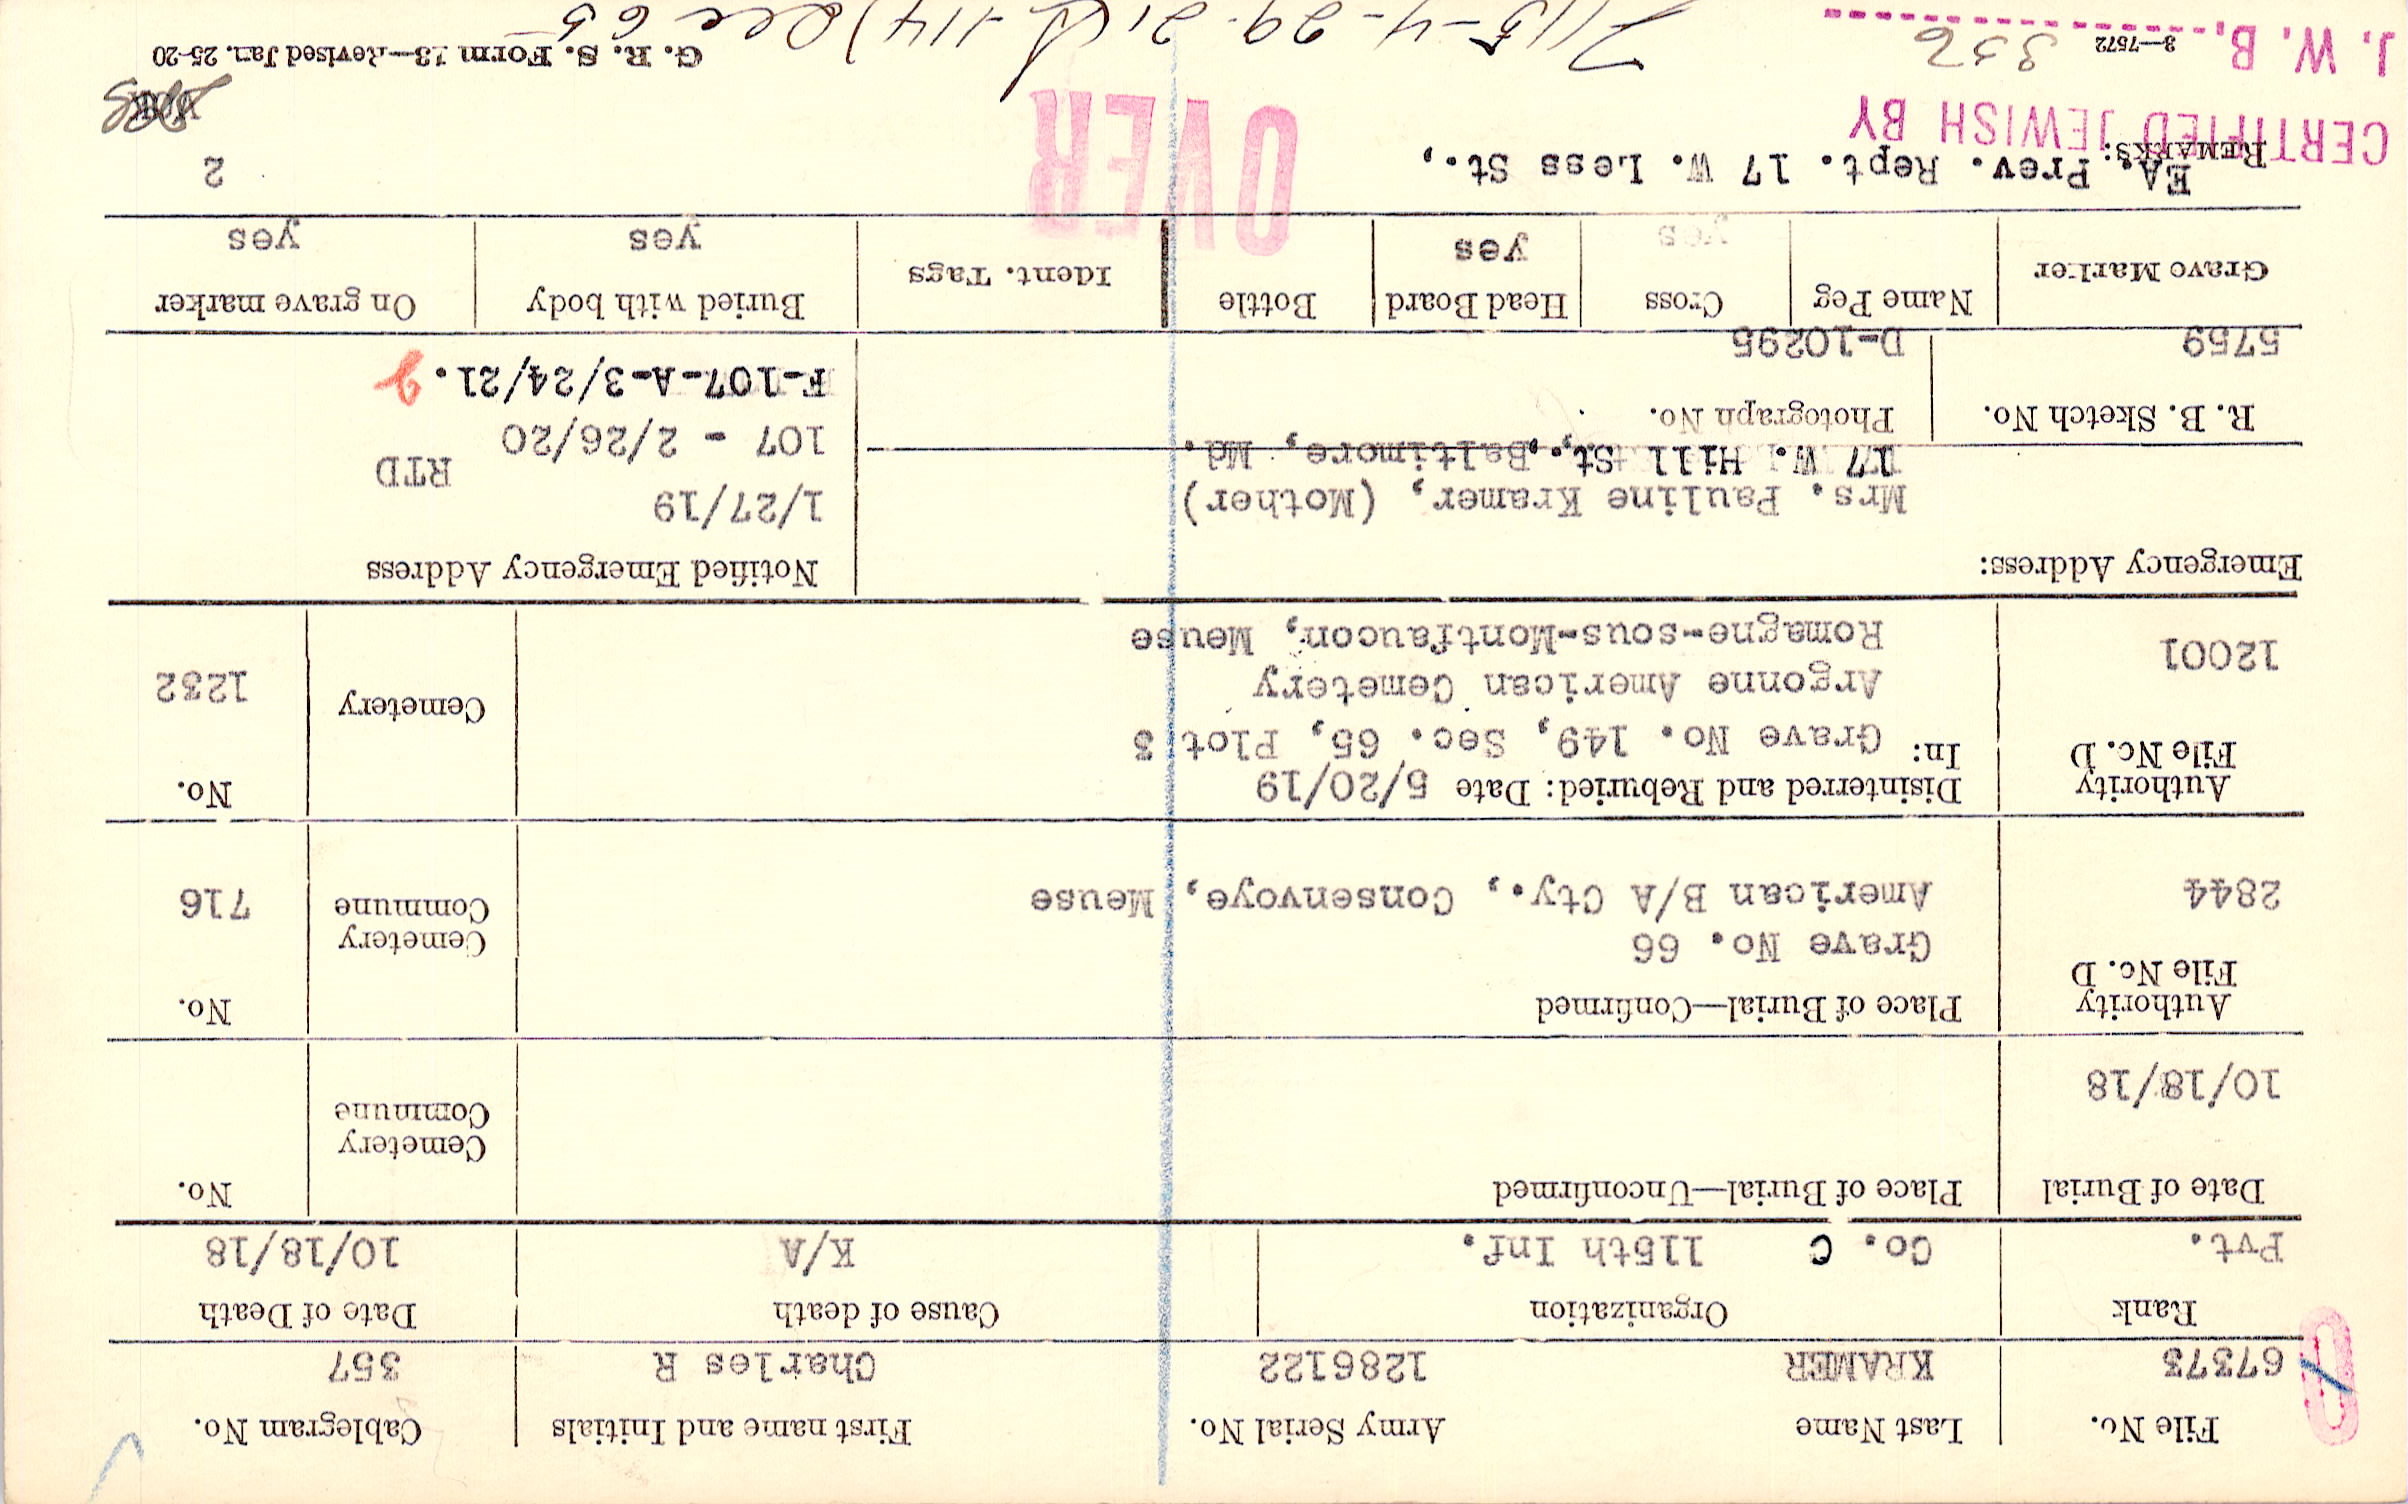 File No. Last Name Army Serial No. First name and Initials Cablegram No.
67373 KRAMER 1286122 Charles R 357
Rank Organization Cause of death Date of Death
Pvt. Co. C 115th Inf. K/A 10/18/18
Date of Burial Place of Burial—Unconfirmed No.
10/18/18 Cemetery
Commune
Authority Place of Burial—Confirmed No.
File No. D Grave No. 66 Cemetery
2844 American B/A Cty., Consenvoye, Meuse Commune 716
Authority Disinterred and Reburied: Date 5/20/19 No.
File No. D In: Grave No. 149, Sec. 65, Plot 3
Argonne American Cemetery Cemetery 1232
12001 Romagne-sous-Montfaucon, Meuse
Emergency Address: Notified Emergency Address
Mrs. Pauline Kramer, (Mother) 1/27/19
17 W. Hill St., Baltimore, Md. RTD
107 - 2/26/20
R. B. Sketch No. Photograph No. F-107-A-3/24/21.
5759 D-10295
Grave Marker Name Peg Cross Head Board Bottle Ident. Tags Buried with body On grave marker
yes yes yes yes
REMARKS: EA. Prev. Rept. 17 W. Less St., 2
CERTIFIED JEWISH BY
OVER
J. W. B.
3—7572 G. R. S. Form 13—Revised Jan. 25-20